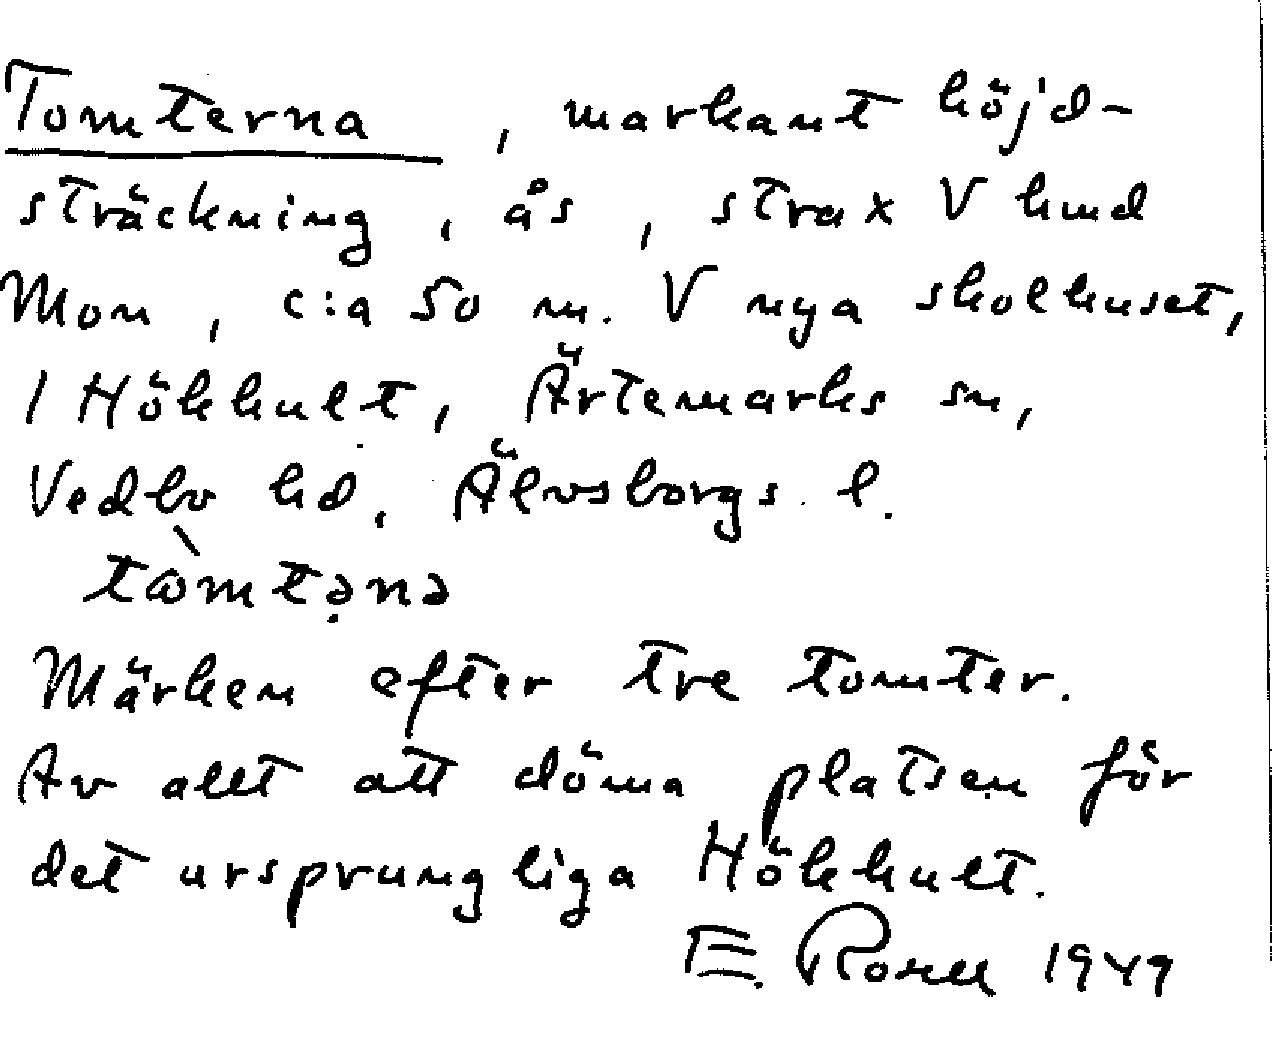 Tomterna, markant höjd-
sträckning, ås, strax V hmd
Mon, c:a 50 m. V nya skolhuset,
1 Hökhult, Ärtemarks sn,
Vedbo hd, Älvsborgs l.
tòmtənə
Märken efter tre tomter.
Av allt att döma platsen för
det ursprungliga Hökhult.
E. Rosell 1949